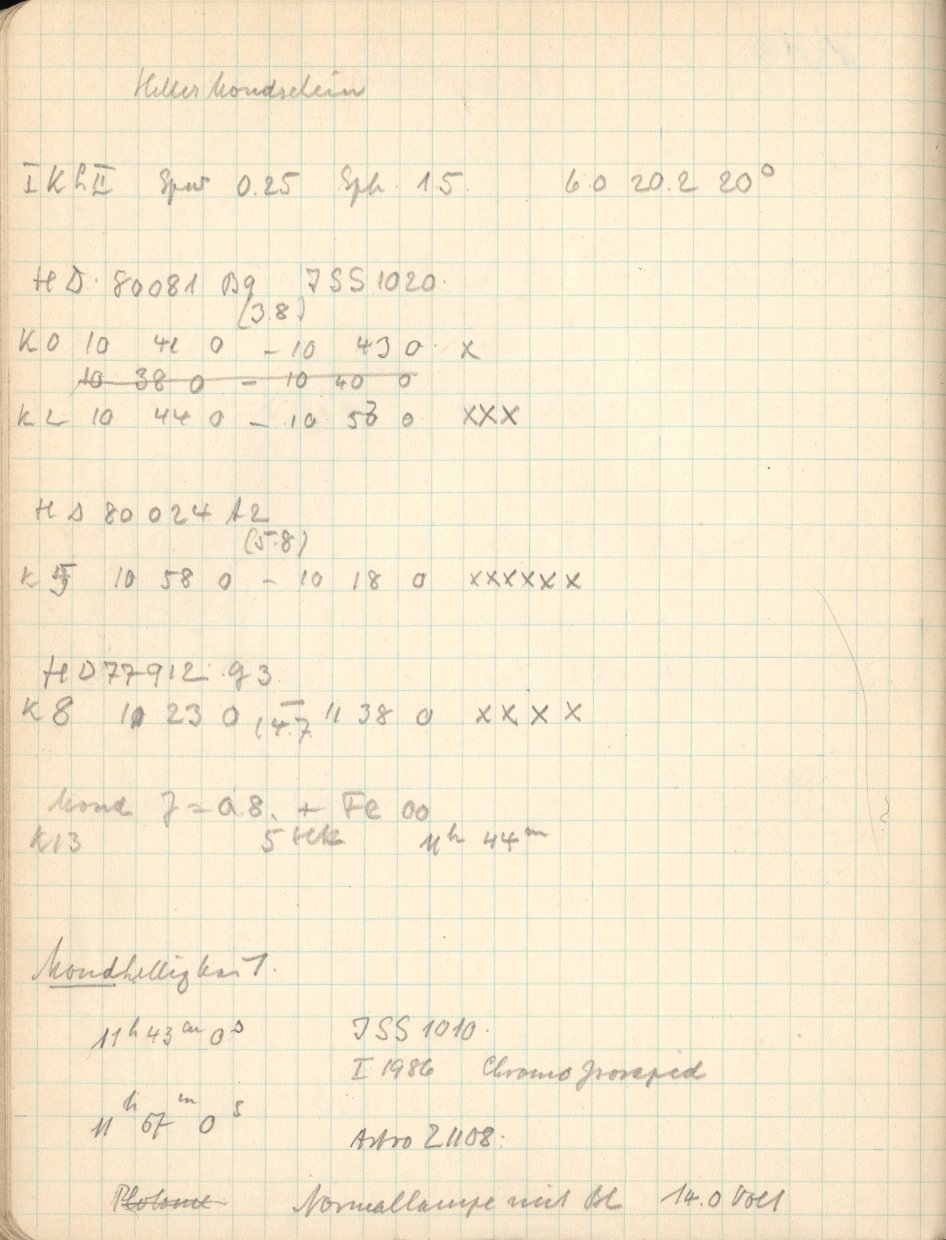 Heller Mondschein
I K h II Spalt 0.25 Sph. 15. 6.0 20.2 20°
HD. 80081 B9 JSS 1020.
(3.8)
K 0 10 41 0 – 10 43 0 x
10 38 0 – 10 40 0
K 2 10 44 0 – 10 53 0 xxx
HD 80024 A2
(5.8)
K 5 10 58 0 – 10 18 0 xxxxxx
HD 77912 g3
K 8 10 23 0 – 11 38 0 xxxx
(4.7
Mond J = 0.8. + Fe 00
K13 5 HK 11h 44m
Mondhelligkeit.
11h 43m 0s JSS 1010.
I 1986 Chromo Isorapid
11h 57m 0s
Astro Z 1108.
Photomet Normallampe mit Bl 14.0 Volt